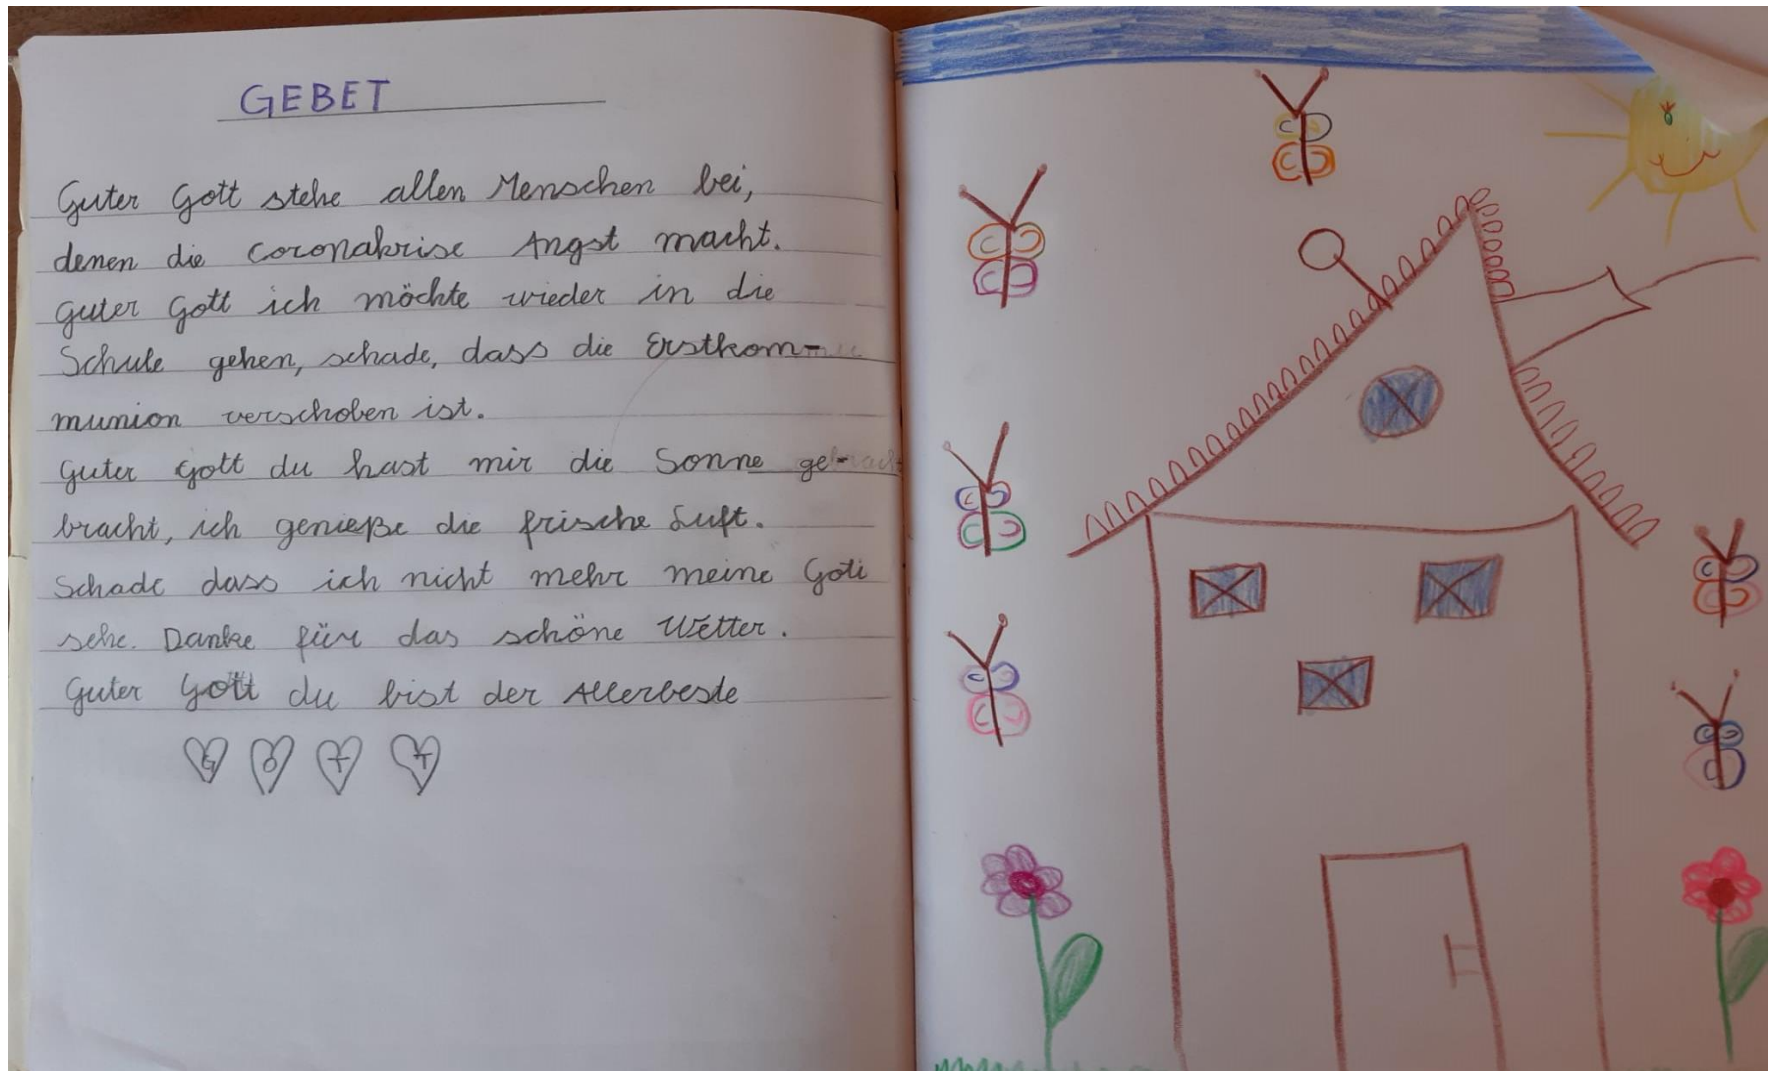 GEBET
Guter Gott stehe allen Menschen bei,
denen die Coronakrise Angst macht.
Guter Gott ich möchte wieder in die
Schule gehen, schade, dass die Erstkom-
munion verschoben ist.
Guter Gott du hast mir die Sonne ge-
bracht, ich genieße die frische Luft.
Schade dass ich nicht mehr meine Goti
sehe. Danke für das schöne Wetter.
Guter Gott du bist der Allerbeste
G O T T